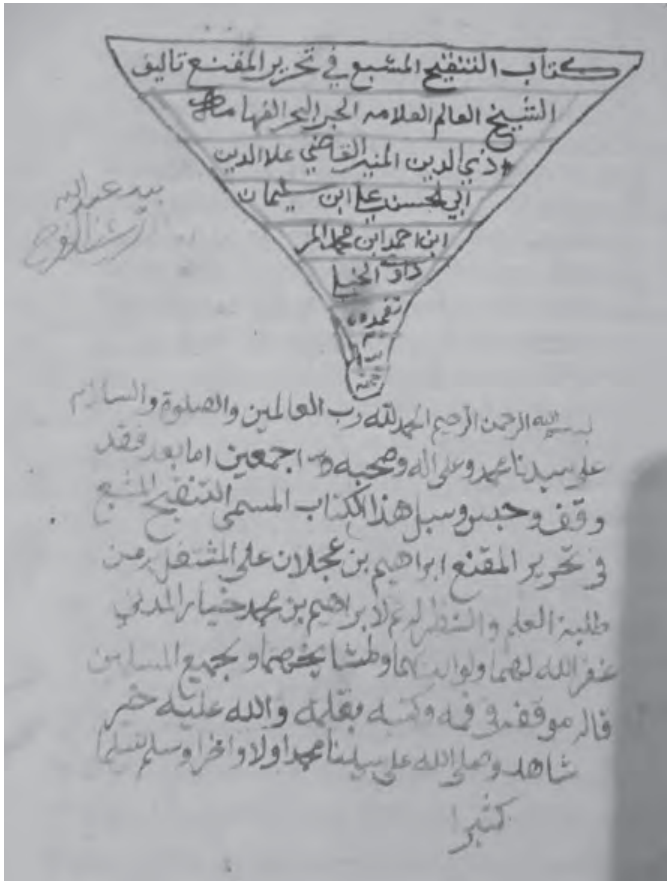 كتاب التنقيح المشبع في تحرير المقنع تاليف
الشيخ العالم العلامه الحبر البحر الفهامه
الدين المنير القاضي علا الدين
ابي الحسن علي ابن سليمان
ابن احمد ابن محمد المر
داوي الحنبلي
تغمده
الله
بيد عبد الله
بسم الله الرحمن الرحيم الحمد لله رب العالمين والصلوة والسلام
على سيدنا محمد وعلى اله وصحبه اجمعين اما بعد فقد
وقف وحبس وسبل هذا الكتاب المسمى التنقيح المشبع
في تحرير المقنع ابراهيم بن عجلان على المشتغل من
طلبة العلم والنظر لابراهيم بن محمد خيار المدني
غفر الله لهما ولوالديهما ولمشايخهما ولجميع المسلمين
قاله موقفه في فمه وكتبه بقلمه والله عليه خير
شاهد وصلى الله على سيدنا محمد اولا واخرا وسلم تسليما
كثيرا